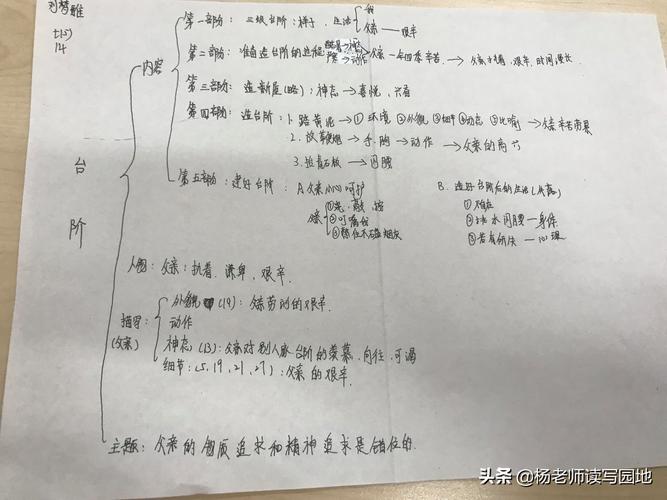 刘梦雅
七(5)
14
台阶
内容
第一部分: 三级台阶: 样子, 生活 { 我
父亲 —— 艰辛
第二部分: 准备造台阶的过程 → 父亲一年四季辛苦 → 父亲执着, 艰辛, 时间漫长
第三部分: 造新屋(略): 神态 → 喜悦, 兴奋
第四部分: 造台阶: 1. 踏黄泥 → ①环境 ②外貌 ③细节 ④动态 ⑤比喻 → 父亲辛苦
2. 放鞭炮 → 手, 胸 → 动作 → 父亲的高兴
3. 抬青石板 → 闪腰
第五部分: 建好台阶: A.父亲小心呵护
父亲 { ①
②
③ 不在 烟灰
B. 造好台阶后的生活(失落)
①不自在
②挑水闪腰 — 身体
③若有所失 — 心理
人物: 父亲: 执着, 谦卑, 艰辛.
描写:
(父亲)
外貌 (19): 父亲劳动的艰辛.
动作
神态 (13): 父亲对别人家台阶的羡慕, 向往, 可渴
细节: (5, 19, 21, 27): 父亲的艰辛.
主题: 父亲的物质追求和精神追求是错位的.
头条 @杨老师读写园地